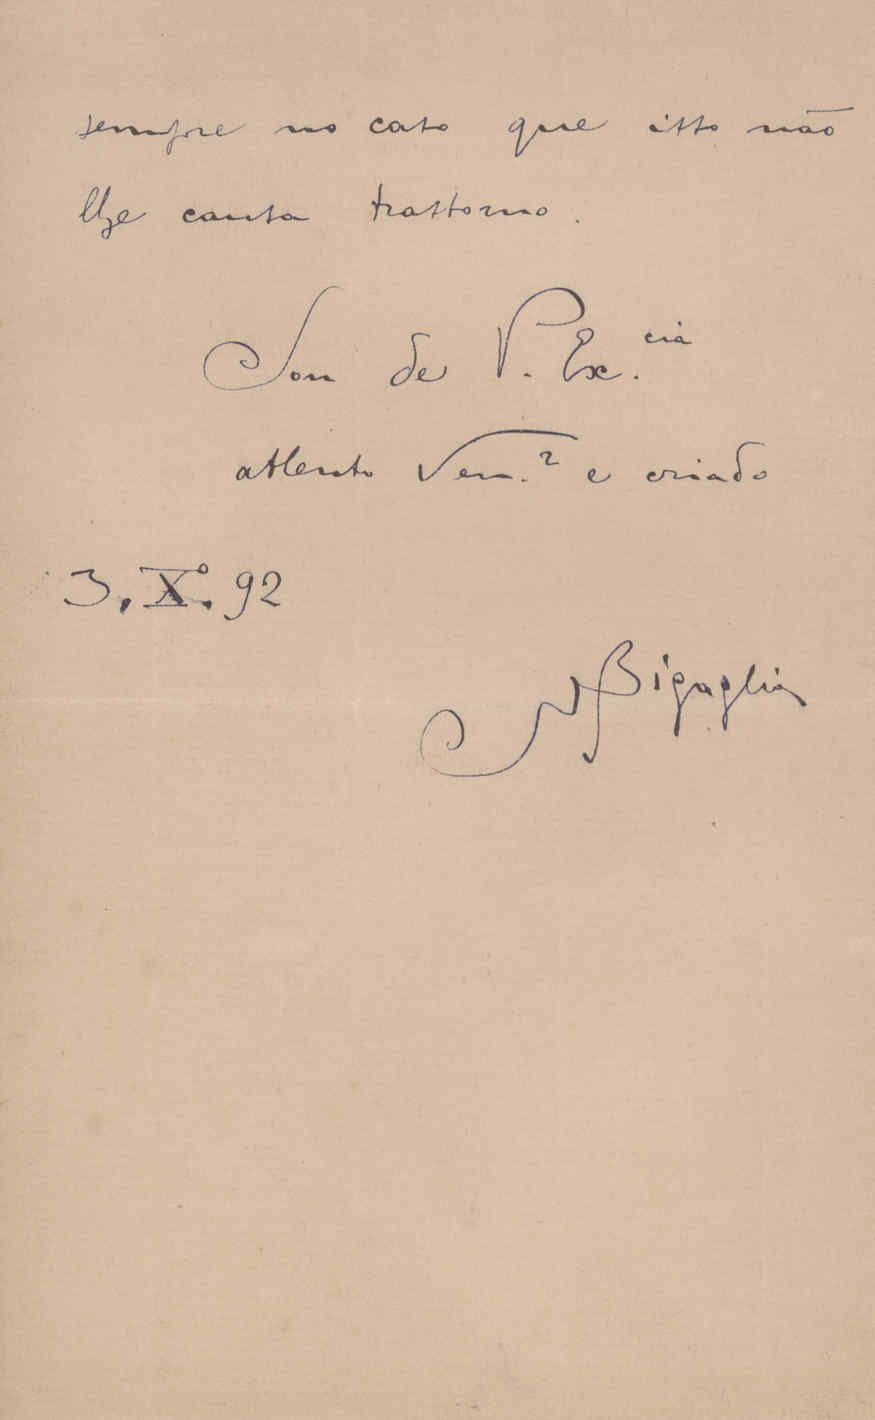 sempre no caso que isto não
lhe causa trastorno.
Sou de V. Ex.cia
attento Ven.r e criado
3. Xº. 92
N Bigaglia